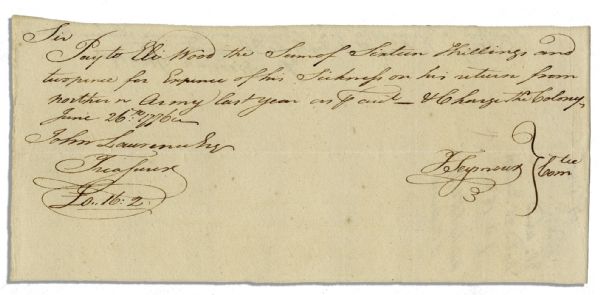 Sir
Pay to Eli Wood the Sum of Sixteen Shillings and
two pence for Expence of his Sickness on his return from
northern Army last year as ⅌ acct_ & Charge the Colony
June 26th 1776
John Lawrence Esq
Treasurer
£0..16..2.
T Seymour } Comtee